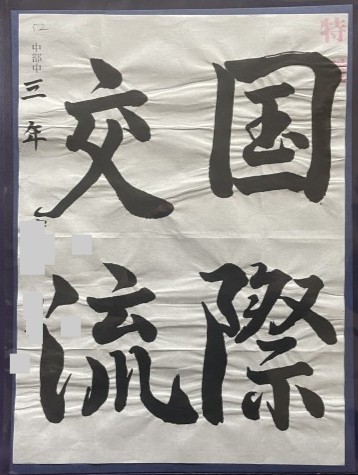 国際
交流
中部中
三年
特